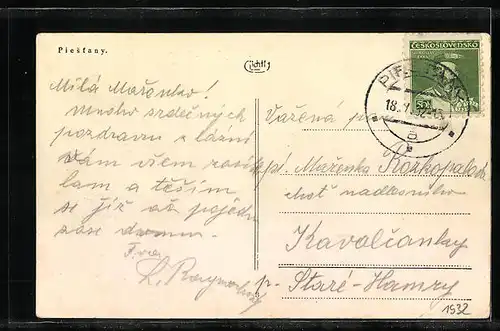 Piešťany.
Milá Mařenko!
Mnoho srdečných
pozdravů z lázní
Vám všem
lam a těším
se již až pojedu
zase domů.
L.
ČESKOSLOVENSKO
18. 32
a
Vážená
pí. Mařenka Rozkopalová
choť nadlesního
Kavalčanky
p. Staré-Hamry
1932